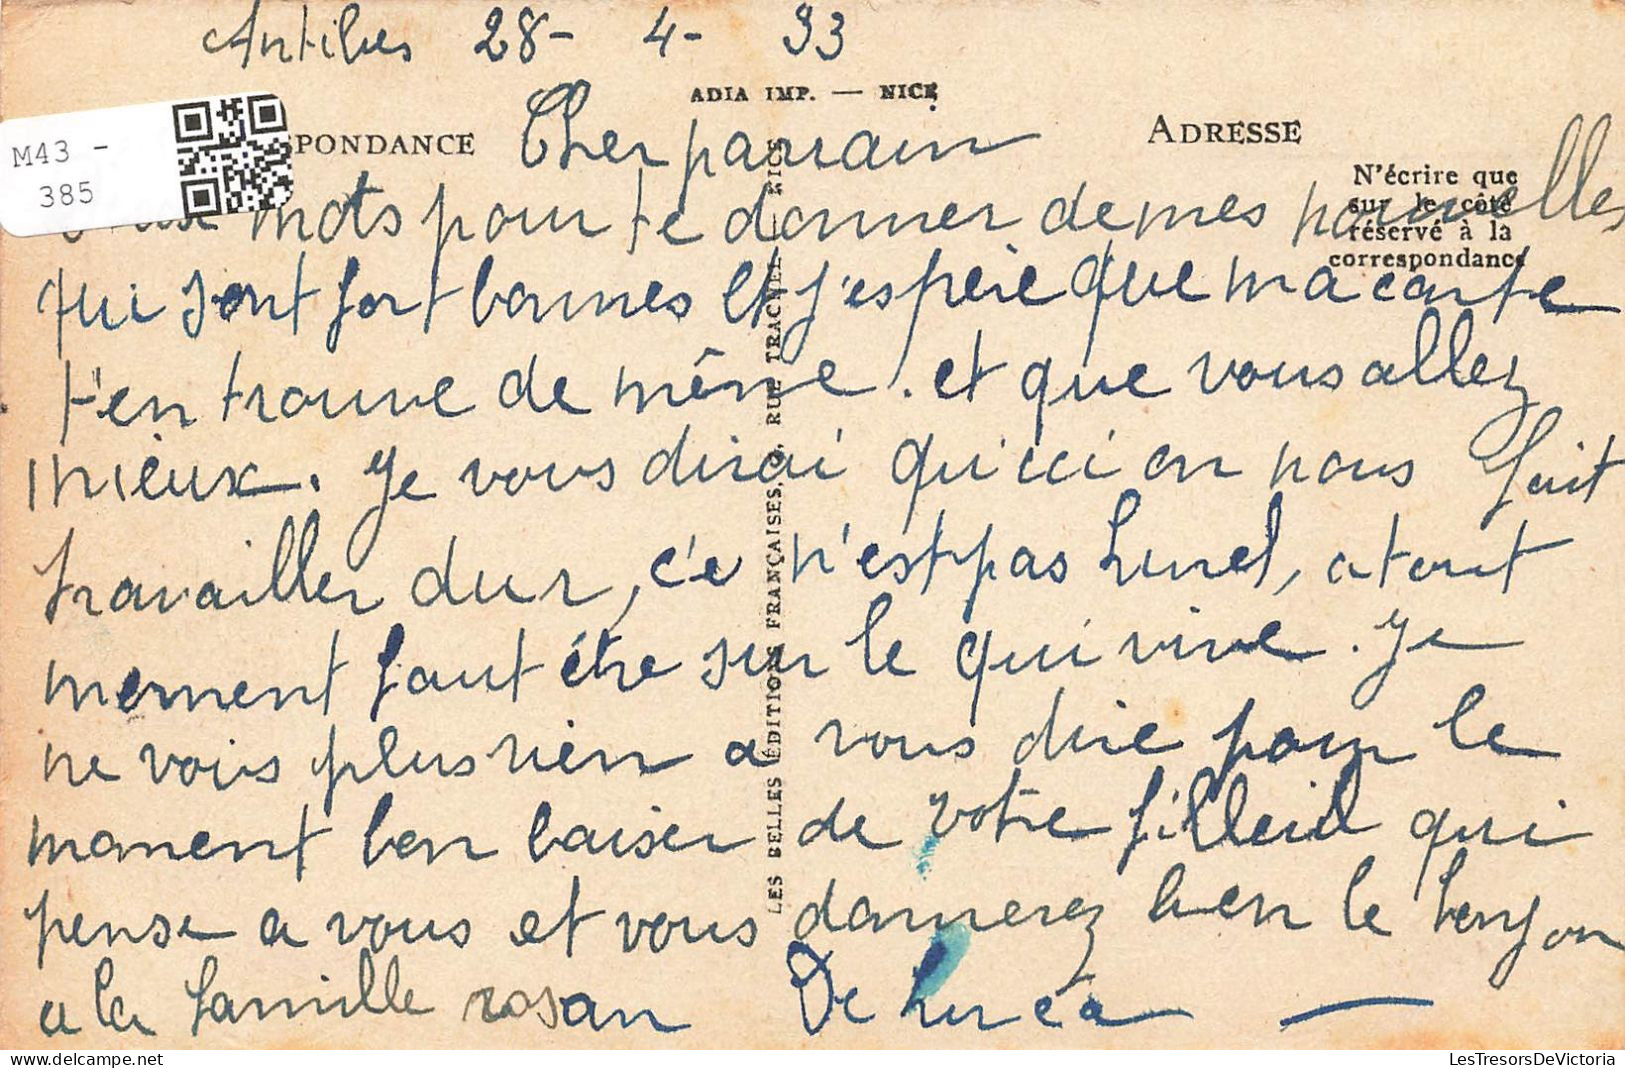 Antibes 28- 4- 33
ADIA IMP. — NICE
M43 -
385
PONDANCE
Cher parrain
ADRESSE
N'écrire que
sur le côté
réservé à la
correspondance
mots pour te donner de mes nouvelles
qui sont fort bonnes et j'espère que ma carte
t'en trouve de même. et que vous allez
mieux. Je vous dirai qu'ici on nous fait
travailler dur, ce n'est pas Lunel, a tout
moment faut être sur le qui vive. Je
ne vois plus rien a vous dire pour le
moment bon baiser de votre filleul qui
pense a vous et vous donnerez bien le bonjon
a la famille rosan De
LES BELLES ÉDITIONS FRANÇAISES, RUE TRACHEL — NICE
LesTresorsDeVictoria